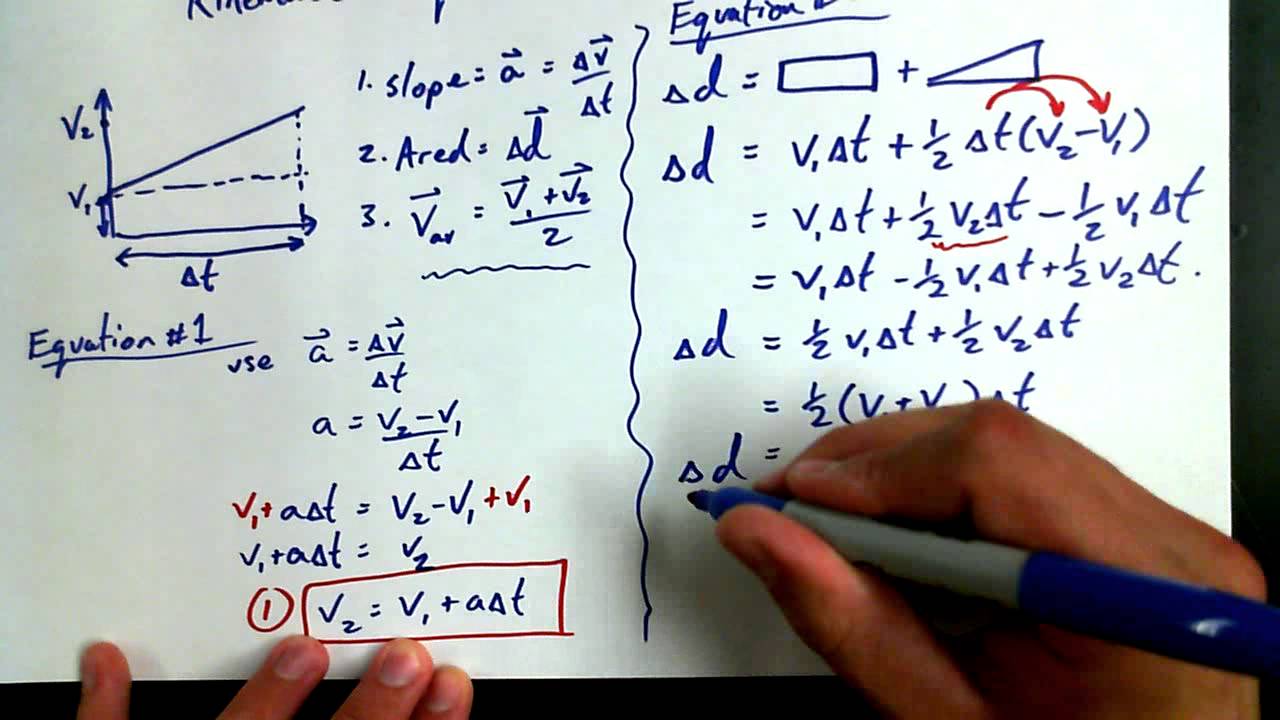 V₂
V₁
Δt
1. Slope = a⃗ = Δv⃗/Δt
2. Area = Δd⃗
3. V⃗av = (V⃗₁ + V⃗₂)/2
Equation #1
use a⃗ = Δv⃗/Δt
a = (V₂ − V₁)/Δt
V₁ + aΔt = V₂ − V₁ + V₁
V₁ + aΔt = V₂
① V₂ = V₁ + aΔt
Equation
Δd = ▭ + ◿
Δd = V₁Δt + ½ Δt(V₂ − V₁)
= V₁Δt + ½ V₂Δt − ½ V₁Δt
= V₁Δt − ½ V₁Δt + ½ V₂Δt.
Δd = ½ V₁Δt + ½ V₂Δt
= ½(V₁ + V₂)Δt
Δd =